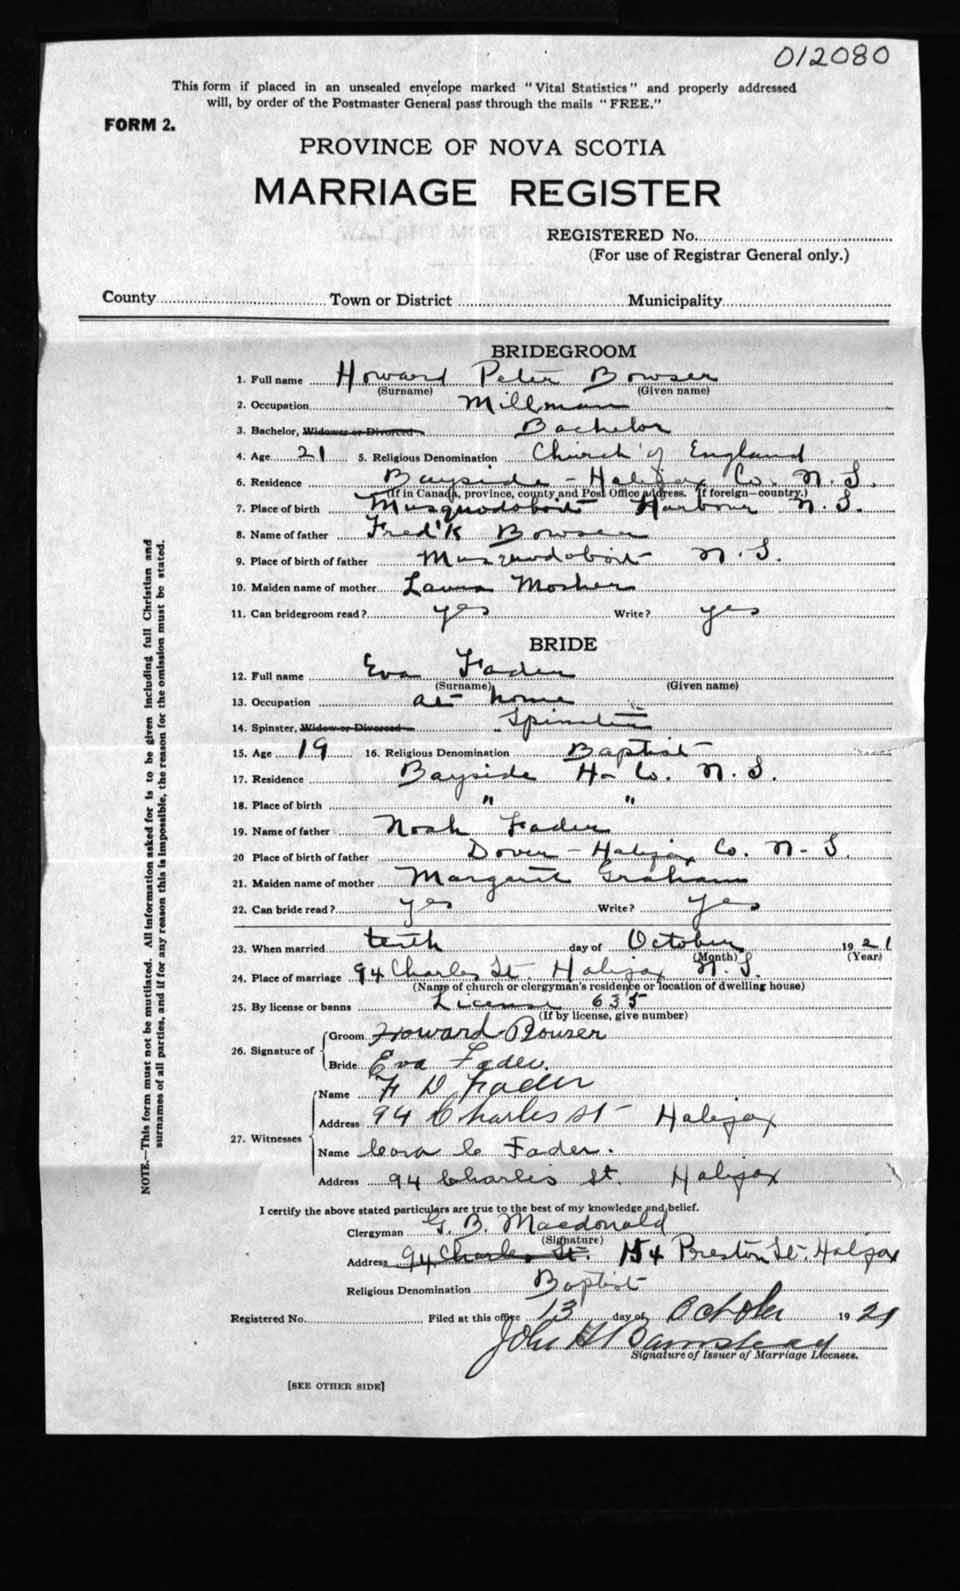 012080
This form if placed in an unsealed envelope marked "Vital Statistics" and properly addressed
will, by order of the Postmaster General pass through the mails "FREE."
FORM 2.
PROVINCE OF NOVA SCOTIA
MARRIAGE REGISTER
REGISTERED No.
(For use of Registrar General only.)
County Town or District Municipality
BRIDEGROOM
1. Full name Howard Peter Bowser
(Surname) (Given name)
2. Occupation Millman
3. Bachelor, Widower or Divorced Bachelor
4. Age 21 5. Religious Denomination Church of England
6. Residence Bayside - Halifax Co. N.S.
(If in Canada, province, county and Post Office address. If foreign—country.)
7. Place of birth Musquodoboit Harbour N.S.
8. Name of father Fred'k Bowser
9. Place of birth of father Musquodoboit N.S.
10. Maiden name of mother Laura Mosher
11. Can bridegroom read? yes Write? yes
BRIDE
12. Full name Eva Fader
(Surname) (Given name)
13. Occupation at home
14. Spinster, Widow or Divorced Spinster
15. Age 19 16. Religious Denomination Baptist
17. Residence Bayside H- Co. N.S.
18. Place of birth " "
19. Name of father Noah Fader
20 Place of birth of father Dover - Halifax Co. N.S.
21. Maiden name of mother Margaret Graham
22. Can bride read? yes Write? yes
23. When married tenth day of October 1921
(Month) (Year)
24. Place of marriage 94 Charles St. Halifax N.S.
(Name of church or clergyman's residence or location of dwelling house)
25. By license or banns License 635
(If by license, give number)
26. Signature of Groom Howard Bowser
Bride Eva Fader.
27. Witnesses Name H D Fader
Address 94 Charles St Halifax
Name Cora C Fader.
Address 94 Charles St. Halifax
I certify the above stated particulars are true to the best of my knowledge and belief.
Clergyman G. B. Macdonald
(Signature)
Address 94 Charles St. 154 Preston St. Halifax
Religious Denomination Baptist
Registered No. Filed at this office 13 day of October 1921
John H Barnstead
Signature of Issuer of Marriage Licenses.
[SEE OTHER SIDE]
NOTE.—This form must not be mutilated. All information asked for is to be given including full Christian and
surnames of all parties, and if for any reason this is impossible, the reason for the omission must be stated.